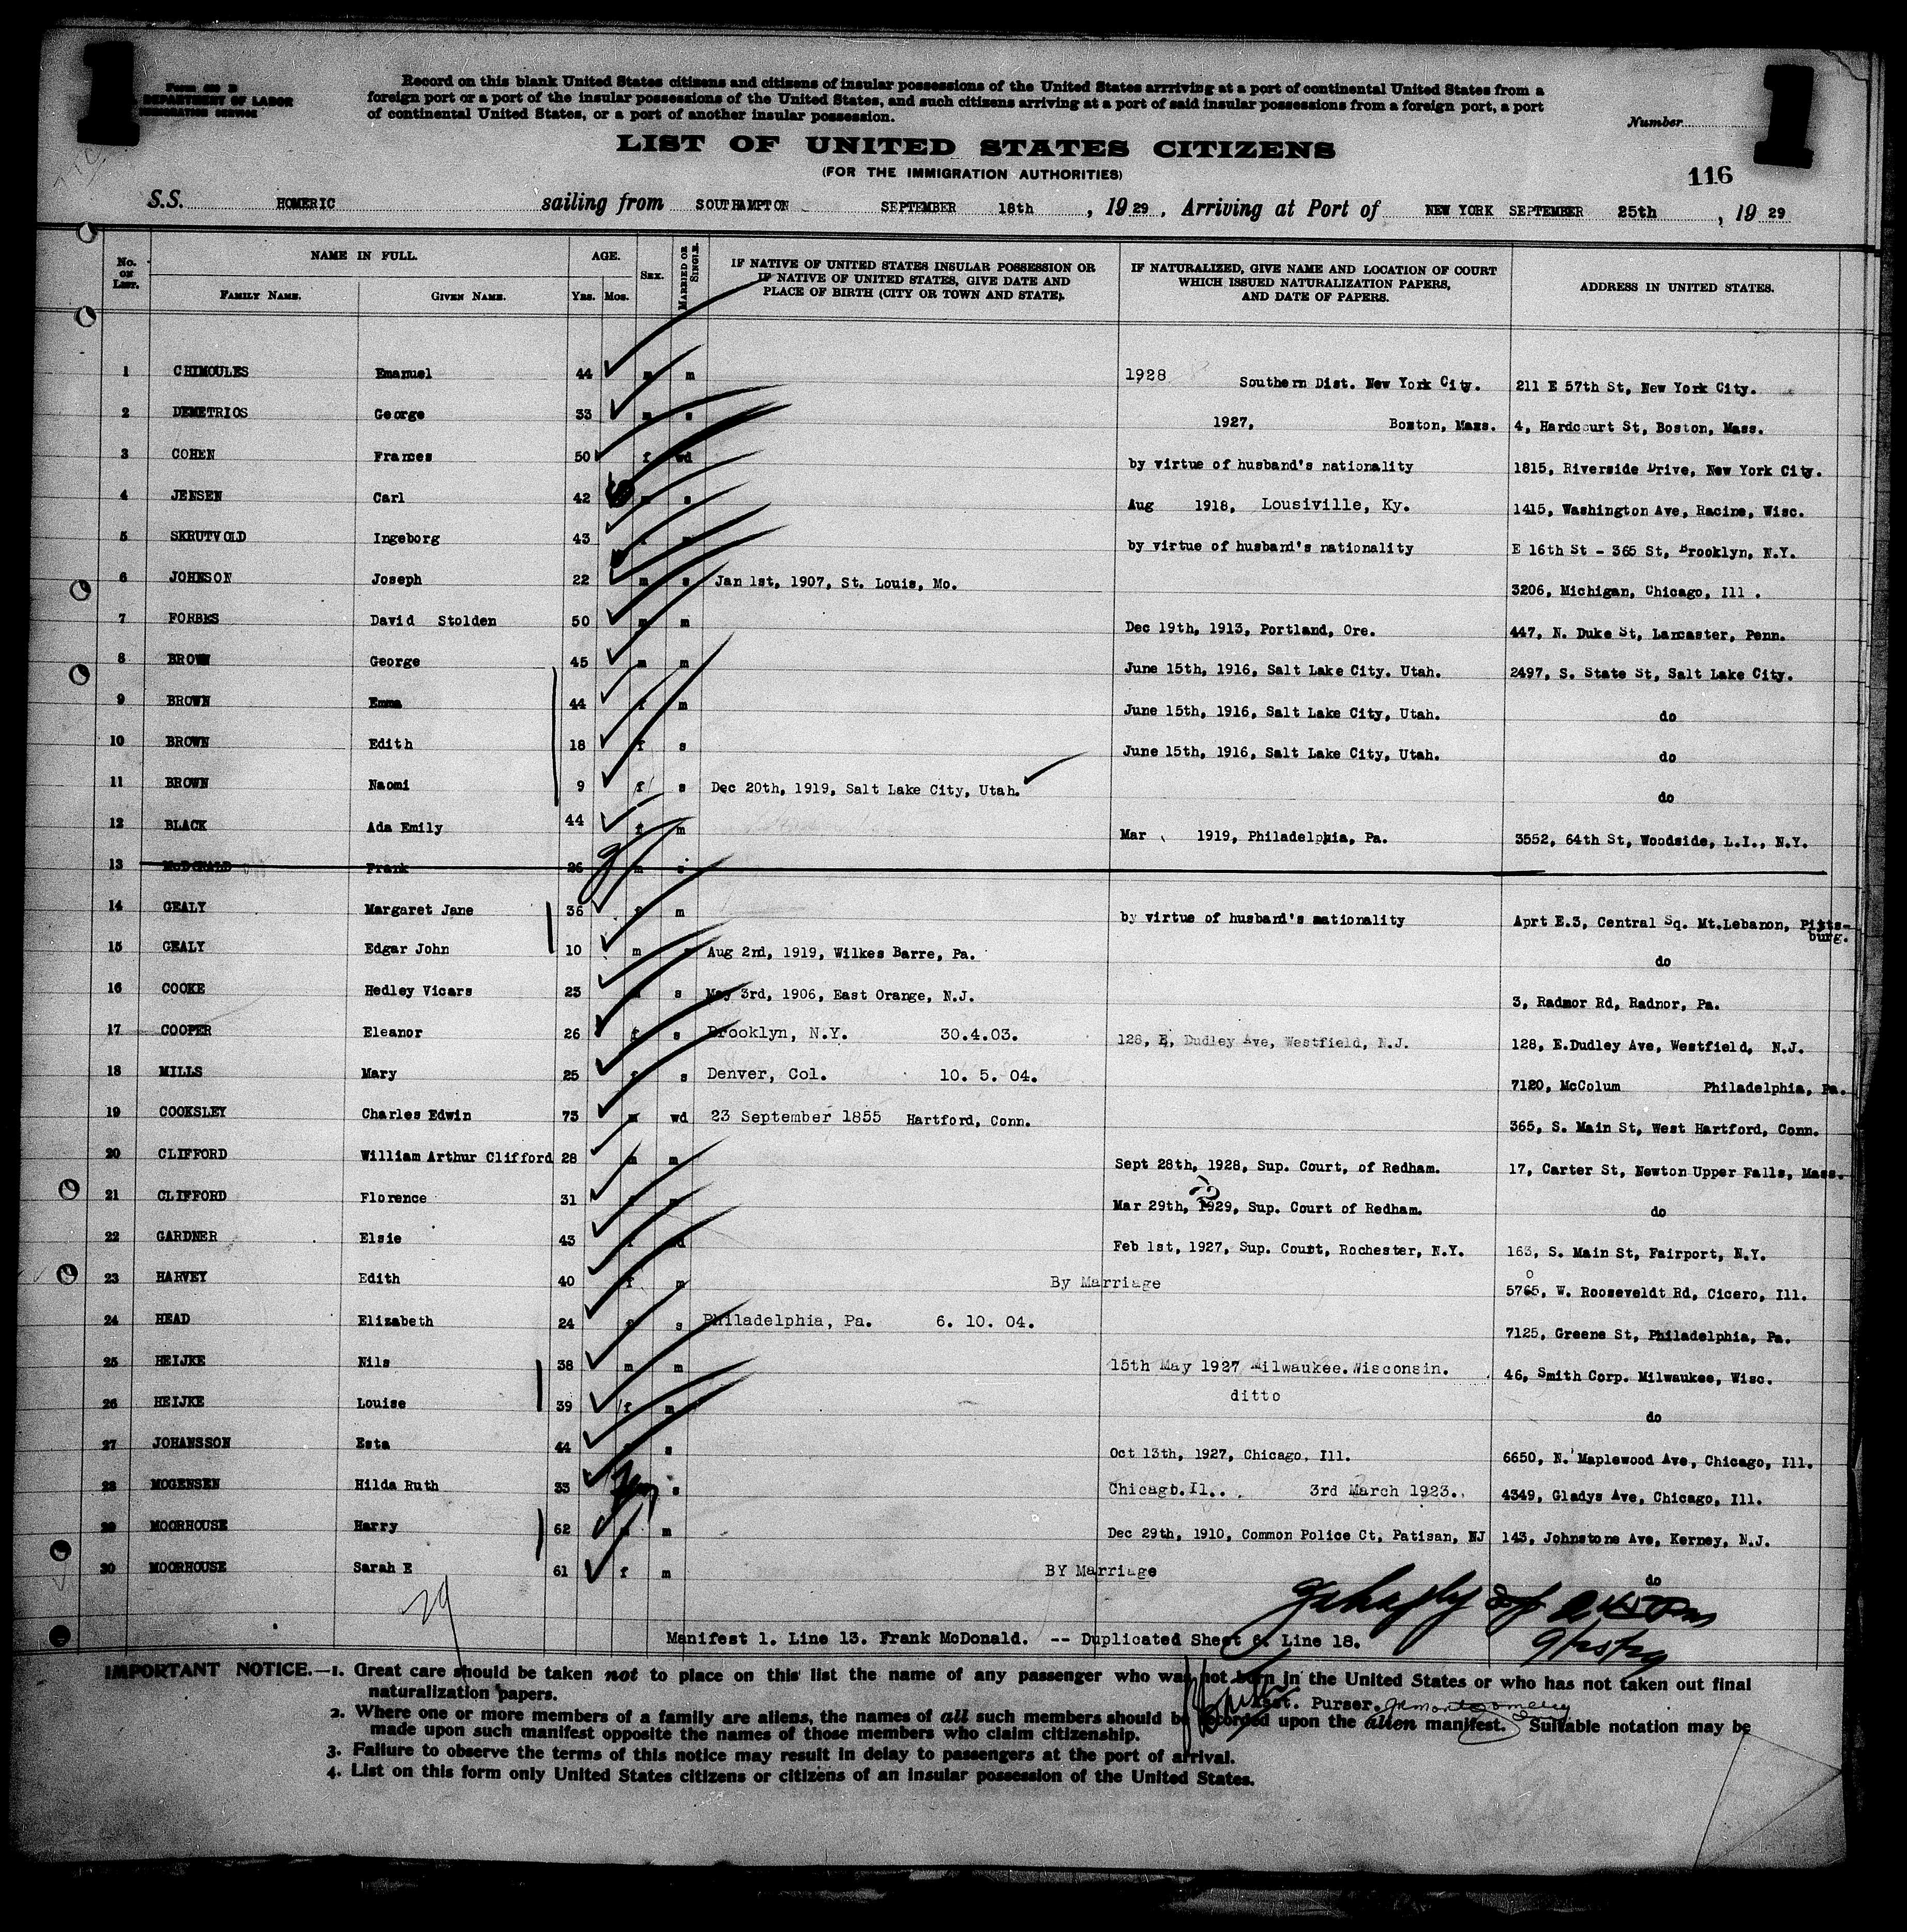 1
1
Form 630 B
DEPARTMENT OF LABOR
IMMIGRATION SERVICE
Record on this blank United States citizens and citizens of insular possessions of the United States arrriving at a port of continental United States from a
foreign port or a port of the insular possessions of the United States, and such citizens arriving at a port of said insular possessions from a foreign port, a port
of continental United States, or a port of another insular possession.
Number
LIST OF UNITED STATES CITIZENS
(FOR THE IMMIGRATION AUTHORITIES)
116
S.S. HOMERIC sailing from SOUTHAMPTON SEPTEMBER 18th , 19 29 , Arriving at Port of NEW YORK SEPTEMBER 25th , 19 29
No. on List. NAME IN FULL. AGE. Sex. Married or Single. IF NATIVE OF UNITED STATES INSULAR POSSESSION OR IF NATIVE OF UNITED STATES, GIVE DATE AND PLACE OF BIRTH (CITY OR TOWN AND STATE). IF NATURALIZED, GIVE NAME AND LOCATION OF COURT WHICH ISSUED NATURALIZATION PAPERS, AND DATE OF PAPERS. ADDRESS IN UNITED STATES.
Family Name. Given Name. Yrs. Mos.
1 CHIMOULES Emanuel 44 m m 1928 Southern Dist. New York City. 211 E 57th St, New York City.
2 DEMETRIOS George 33 m s 1927, Boston, Mass. 4, Hardcourt St, Boston, Mass.
3 COHEN Frances 50 f wd by virtue of husband's nationality 1815, Riverside Drive, New York City.
4 JENSEN Carl 42 m s Aug 1918, Lousiville, Ky. 1415, Washington Ave, Racine, Wisc.
5 SKRUTVOLD Ingeborg 43 f m by virtue of husband's nationality E 16th St - 365 St, Brooklyn, N.Y.
6 JOHNSON Joseph 22 m s Jan 1st, 1907, St. Louis, Mo. 3206, Michigan, Chicago, Ill .
7 FORBES David Stolden 50 m m Dec 19th, 1913, Portland, Ore. 447, N. Duke St, Lancaster, Penn.
8 BROWN George 45 m m June 15th, 1916, Salt Lake City. Utah. 2497, S. State St, Salt Lake City.
9 BROWN Emma 44 f m June 15th, 1916, Salt Lake City, Utah. do
10 BROWN Edith 18 f s June 15th, 1916, Salt Lake City, Utah. do
11 BROWN Naomi 9 f s Dec 20th, 1919, Salt Lake City, Utah. do
12 BLACK Ada Emily 44 f m Mar 1919, Philadelphia, Pa. 3552, 64th St, Woodside, L.I., N.Y.
13 McDONALD Frank 26 m s
14 GEALY Margaret Jane 36 f m by virtue of husband's nationality Aprt E.3, Central Sq. Mt.Lebanon, Pitts-
burg.
15 GEALY Edgar John 10 m s Aug 2nd, 1919, Wilkes Barre, Pa. do
16 COOKE Hedley Vicars 23 m s May 3rd, 1906, East Orange, N.J. 3, Radnor Rd, Radnor, Pa.
17 COOPER Eleanor 26 f s Brooklyn, N.Y. 30.4.03. 128, E, Dudley Ave, Westfield, N.J. 128, E.Dudley Ave, Westfield, N.J.
18 MILLS Mary 25 f s Denver, Col. 10. 5. 04. 7120, McColum Philadelphia, Pa.
19 COOKSLEY Charles Edwin 73 m wd 23 September 1855 Hartford, Conn. 365, S. Main St, West Hartford, Conn.
20 CLIFFORD William Arthur Clifford 28 m m Sept 28th, 1928, Sup. Court, of Redham. 17, Carter St, Newton Upper Falls, Mass.
21 CLIFFORD Florence 31 f m Mar 29th, 1929, Sup. Court of Redham. do
22 GARDNER Elsie 43 f wd Feb 1st, 1927, Sup. Court, Rochester, N.Y. 163, S. Main St, Fairport, N.Y.
23 HARVEY Edith 40 f m By Marriage 5765, W. Rooseveldt Rd, Cicero, Ill.
24 HEAD Elizabeth 24 f s Philadelphia, Pa. 6. 10. 04. 7125, Greene St, Philadelphia, Pa.
25 HEIJKE Nils 38 m m 15th May 1927 Milwaukee.Wisconsin. 46, Smith Corp. Milwaukee, Wisc.
26 HEIJKE Louise 39 f m ditto do
27 JOHANSSON Esta 44 s Oct 13th, 1927, Chicago, Ill. 6650, N. Maplewood Ave, Chicago, Ill.
28 MOGENSEN Hilda Ruth 33 s Chicago.Il.. 3rd March 1923. 4349, Gladys Ave, Chicago, Ill.
29 MOORHOUSE Harry 62 m m Dec 29th, 1910, Common Police Ct, Patisan, NJ 143, Johnstone Ave, Kerney, N.J.
30 MOORHOUSE Sarah E 61 f m BY Marriage do
29
Manifest 1. Line 13. Frank McDonald. -- Duplicated Sheet 6. Line 18.
9/25/29
IMPORTANT NOTICE.—1. Great care should be taken not to place on this list the name of any passenger who was not born in the United States or who has not taken out final
naturalization papers.
Asst. Purser.
2. Where one or more members of a family are aliens, the names of all such members should be recorded upon the alien manifest. Suitable notation may be
made upon such manifest opposite the names of those members who claim citizenship.
3. Failure to observe the terms of this notice may result in delay to passengers at the port of arrival.
4. List on this form only United States citizens or citizens of an insular possession of the United States.